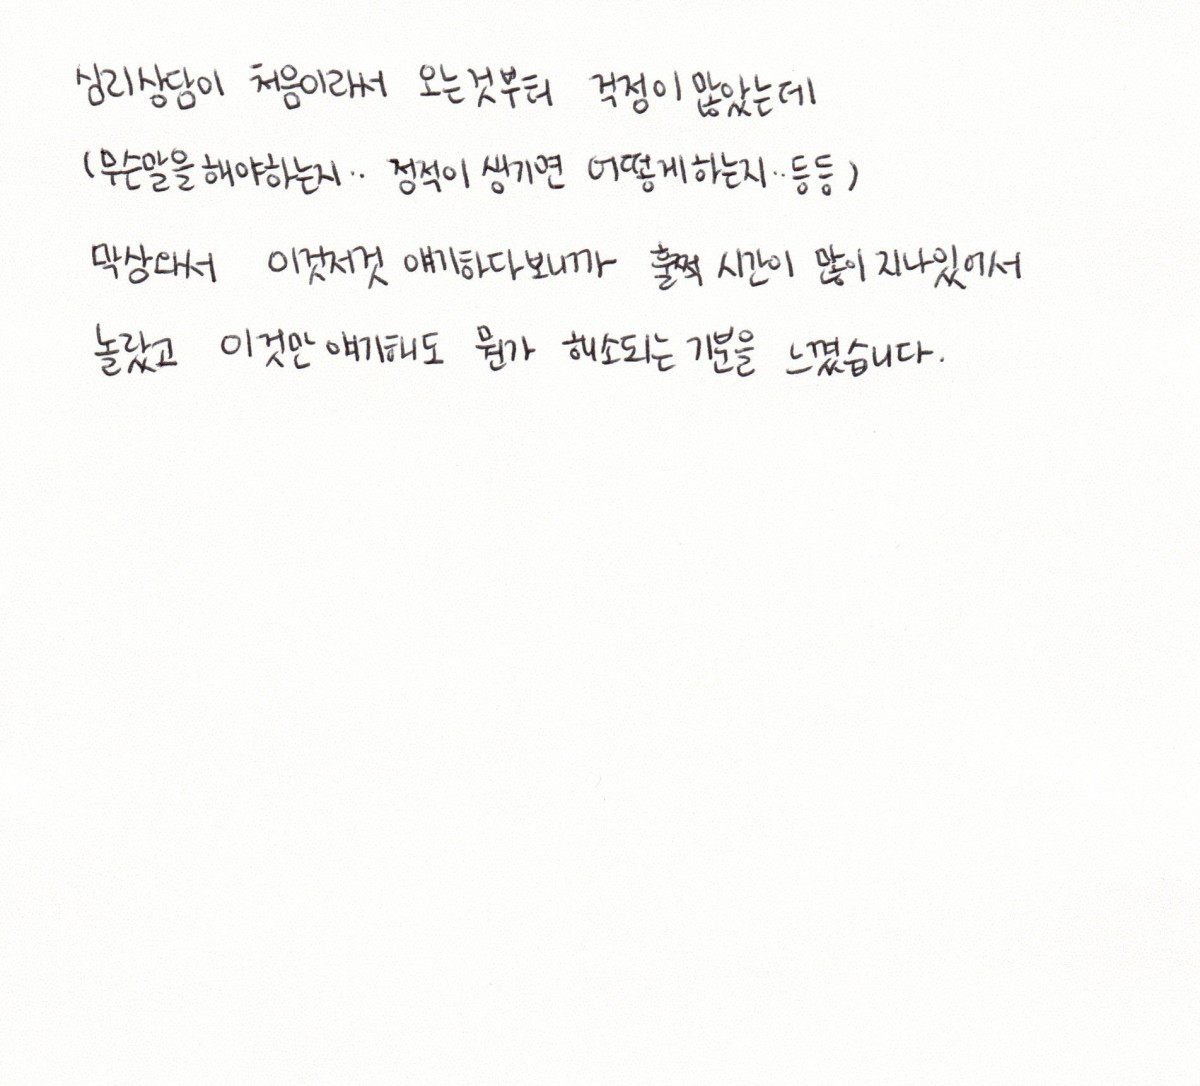 심리상담이 처음이라서 오는것부터 걱정이 많았는데
(무슨말을 해야하는지.. 정적이 생기면 어떻게하는지..등등)
막상와서 이것저것 얘기하다보니까 훌쩍 시간이 많이 지나있어서
놀랐고 이것만 얘기해도 뭔가 해소되는 기분을 느꼈습니다.